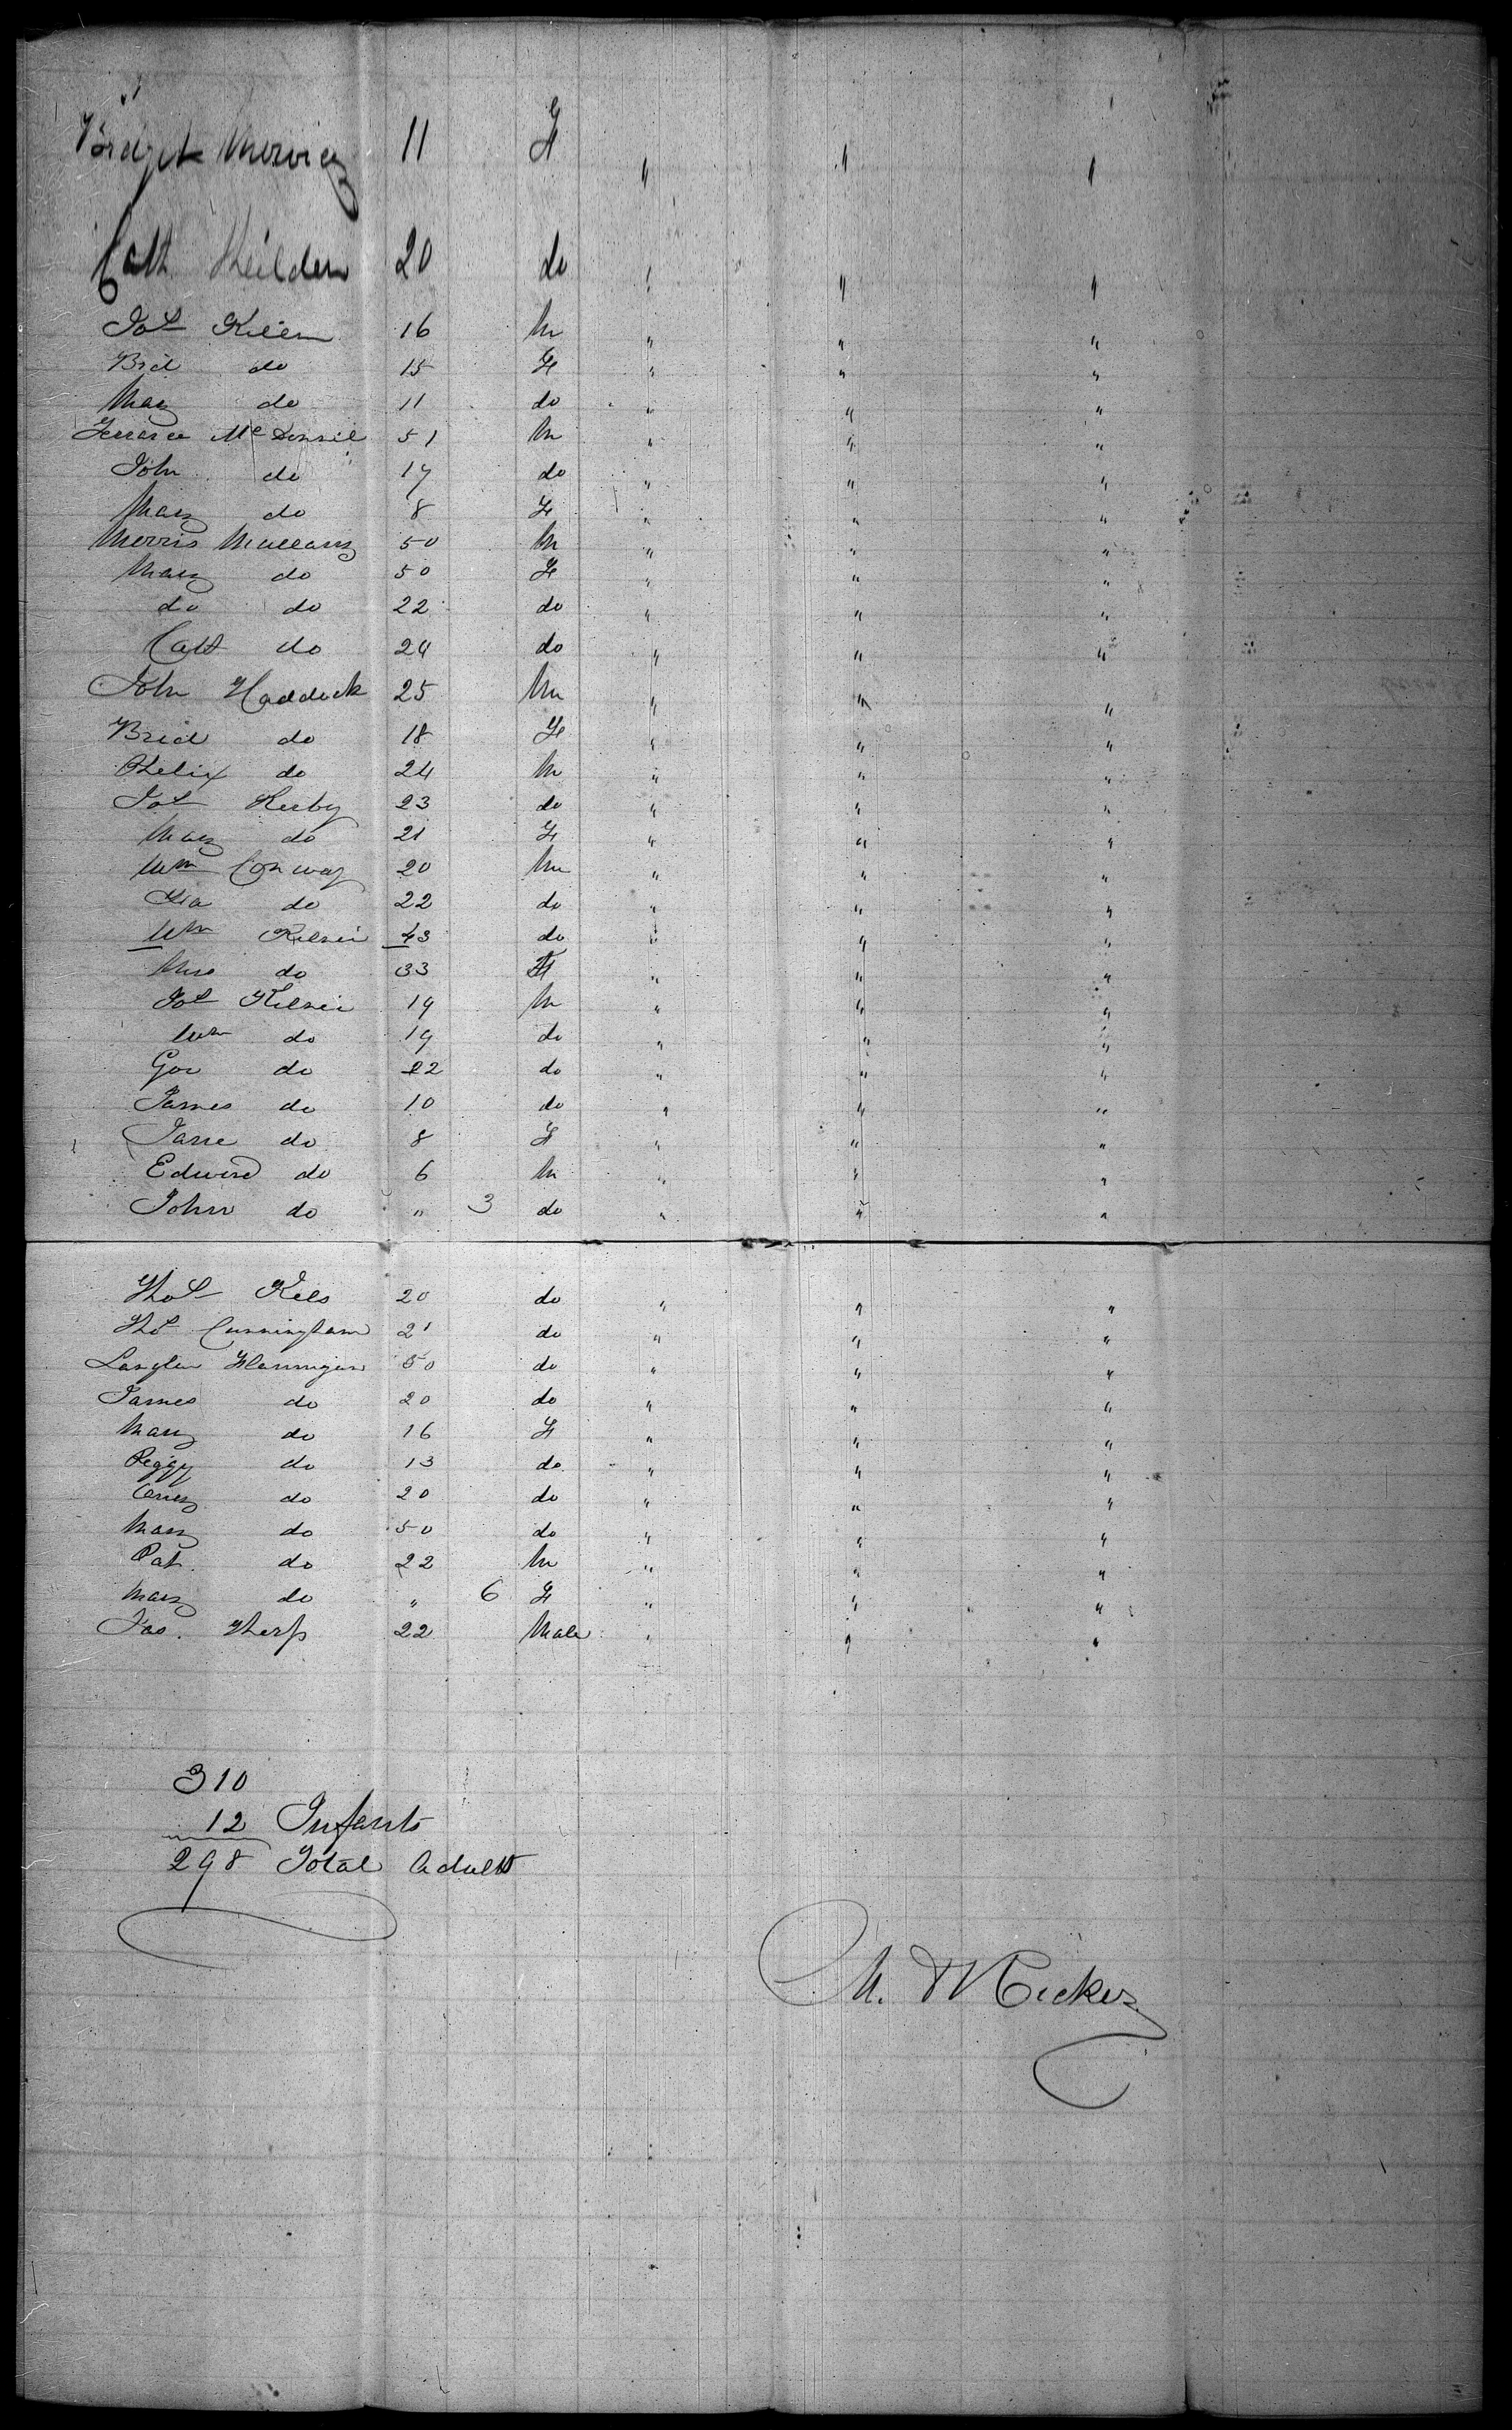 Bridget 11 F " " "
Cath 20 do " " "
Jas Killen 16 M " " "
Brid do 15 F " " "
Mary do 11 do " " "
Terrance Mc 51 M " " "
John do 17 do " " "
Mary do 8 F " " "
Morris Mullany 50 M " " "
Mary do 50 F " " "
do do 22 do " " "
Cath do 24 do " " "
John Haddock 25 M " " "
Brid do 18 F " " "
Phelix do 24 M " " "
Jas Kerby 23 do " " "
Mary do 21 F " " "
Wm Conway 20 M " " "
do 22 do " " "
Wm 43 do " " "
Mrs do 33 F " " "
Jas 19 M " " "
Wm do 19 do " " "
Geo do 22 do " " "
James do 10 do " " "
Jane do 8 F " " "
Edward do 6 M " " "
John do " 3 do " " "
Thos 20 do " " "
Thos Cunningham 21 do " " "
Flannigan 50 do " " "
James do 20 do " " "
Mary do 16 F " " "
Peggy do 13 do " " "
do 20 do " " "
Mary do 50 do " " "
Pat do 22 M " " "
Mary do " 6 F " " "
Jas. 22 Male " " "
310
12 Infants
298 Total Adults